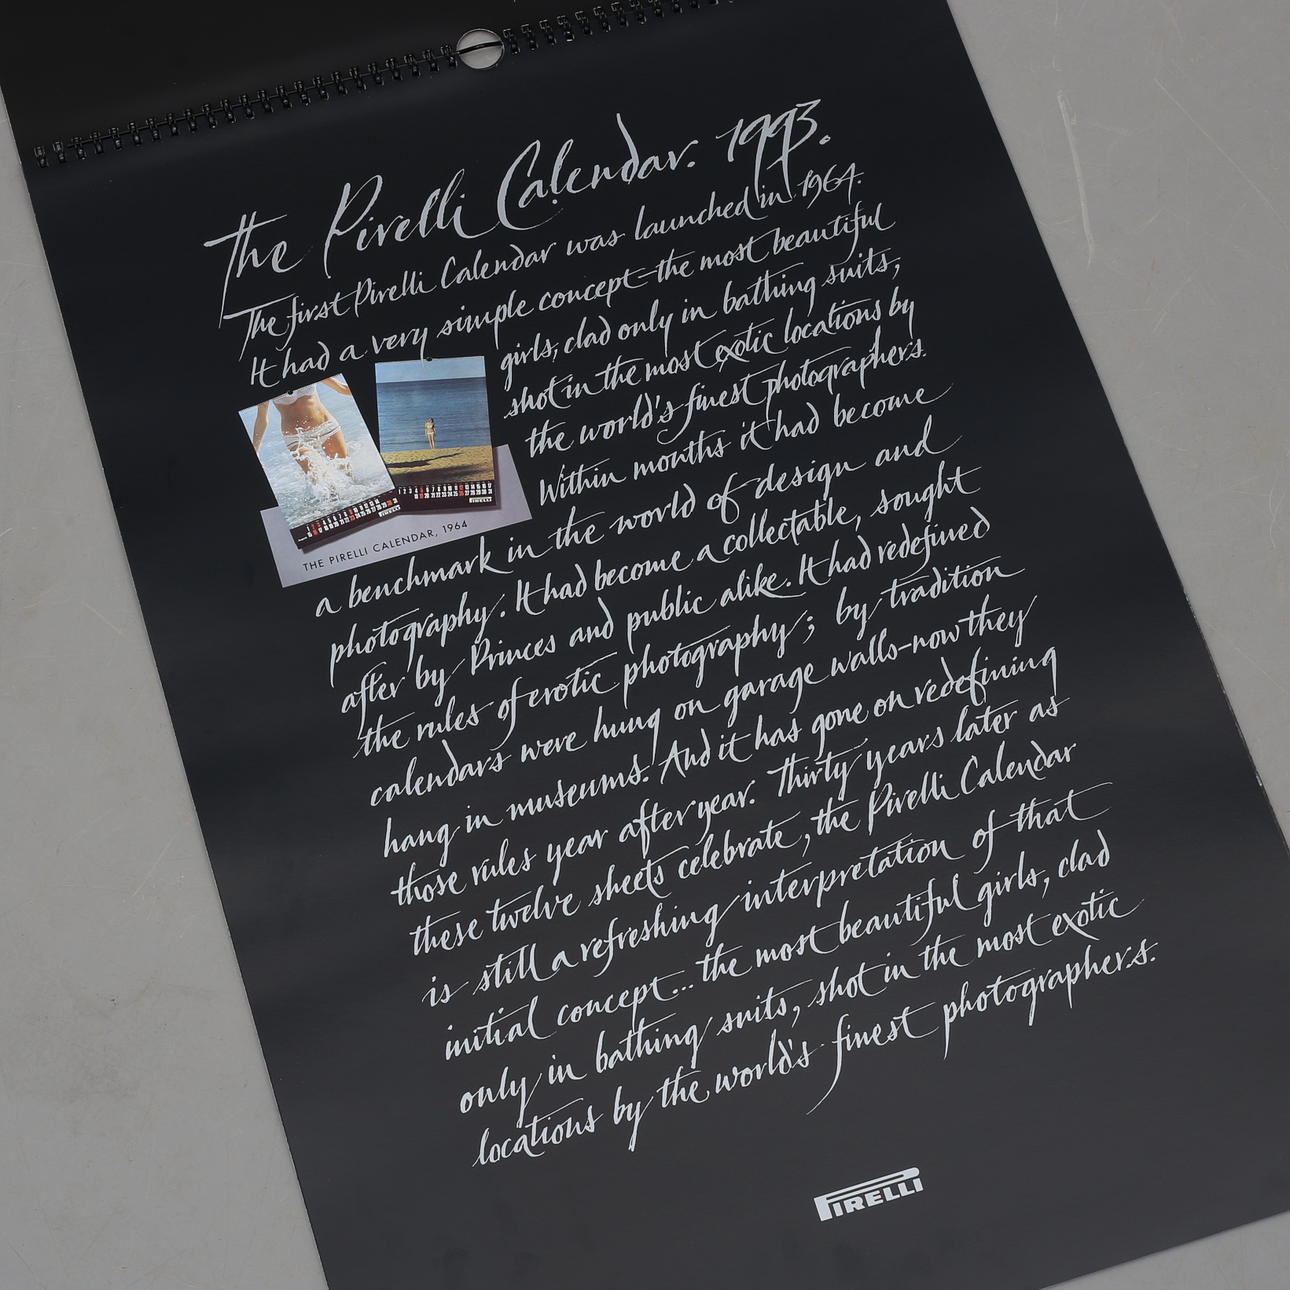 the Pirelli Calendar. 1993.
The first Pirelli Calendar was launched in 1964.
It had a very simple concept-the most beautiful
girls, clad only in bathing suits,
shot in the most exotic locations by
the world's finest photographers.
Within months it had become
THE PIRELLI CALENDAR, 1964
a benchmark in the world of design and
photography. It had become a collectable, sought
after by Princes and public alike. It had redefined
the rules of erotic photography; by tradition
calendars were hung on garage walls-now they
hang in museums. And it has gone on redefining
those rules year after year. Thirty years later as
these twelve sheets celebrate, the Pirelli Calendar
is still a refreshing interpretation of that
initial concept... the most beautiful girls, clad
only in bathing suits, shot in the most exotic
locations by the world's finest photographers.
PIRELLI